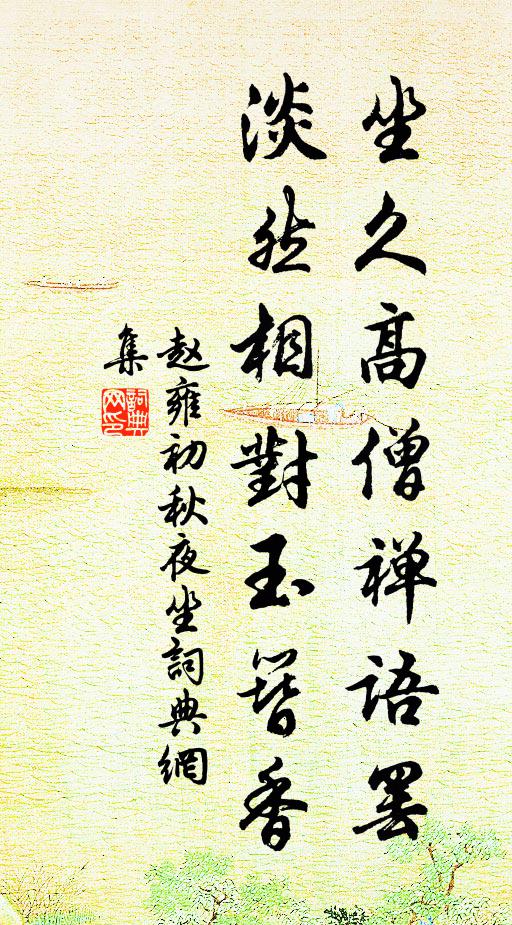 坐久高僧禅语罢
淡然相對玉簪香
赵雍初秋夜坐詞典網
集
詞典
网印